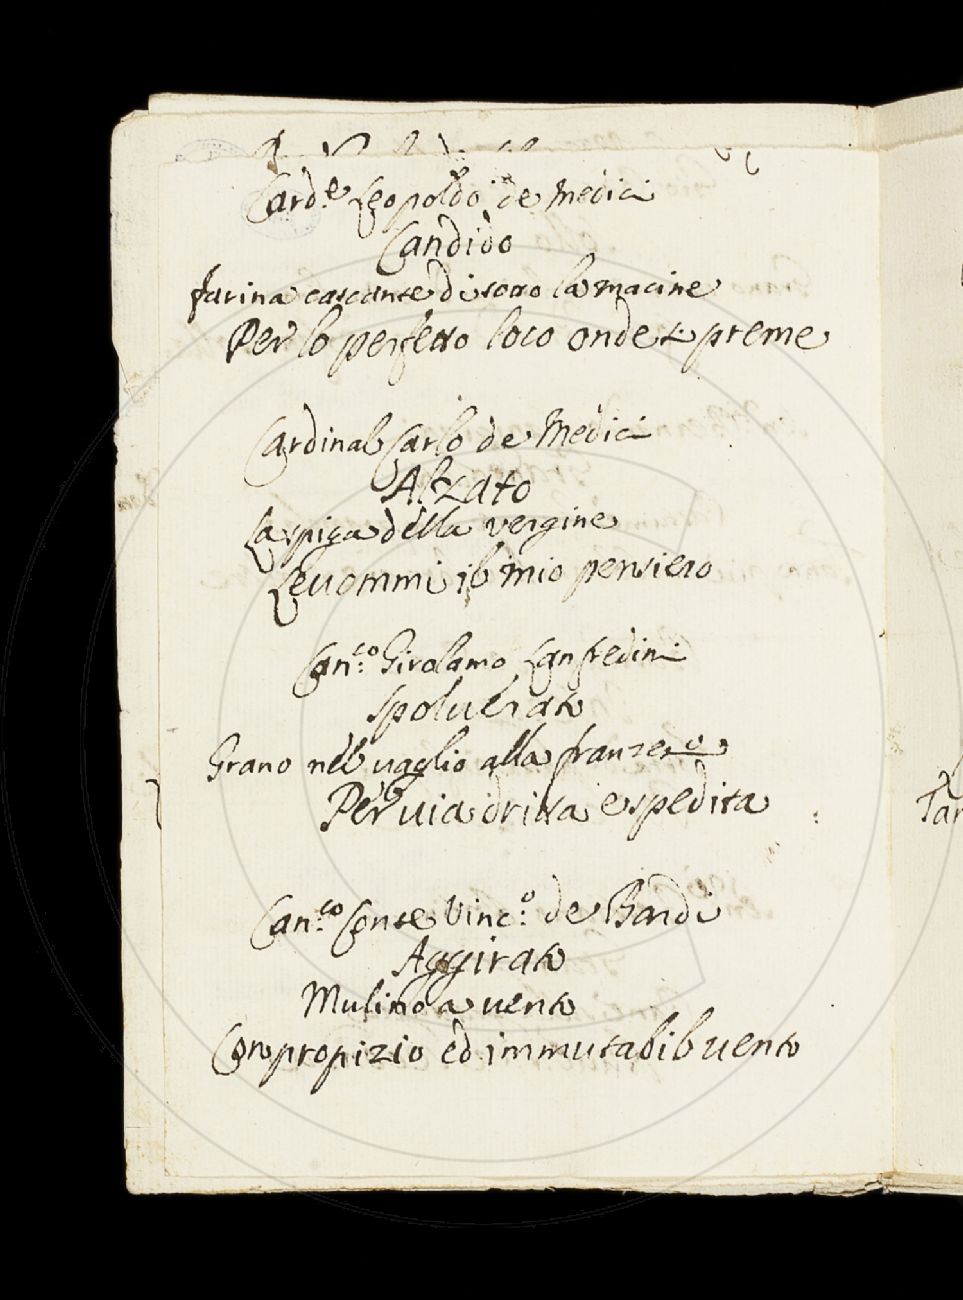 Card.e Leopoldo de Medici
Candido
farina cascante di sotto la macine
Per lo perfetto loco onde si preme
Cardinal Carlo de Medici
Alzato
La spiga della vergine
Levommi il mio pensiero
Can.co Girolamo Lanfredini
Spoluerato
Grano nel uaglio alla franzese
Per uia dritta e spedita
Can.co Conte Vinc.o de Bardi
Aggirato
Mulino a uento
Con propizio ed immutabil uento
Tar